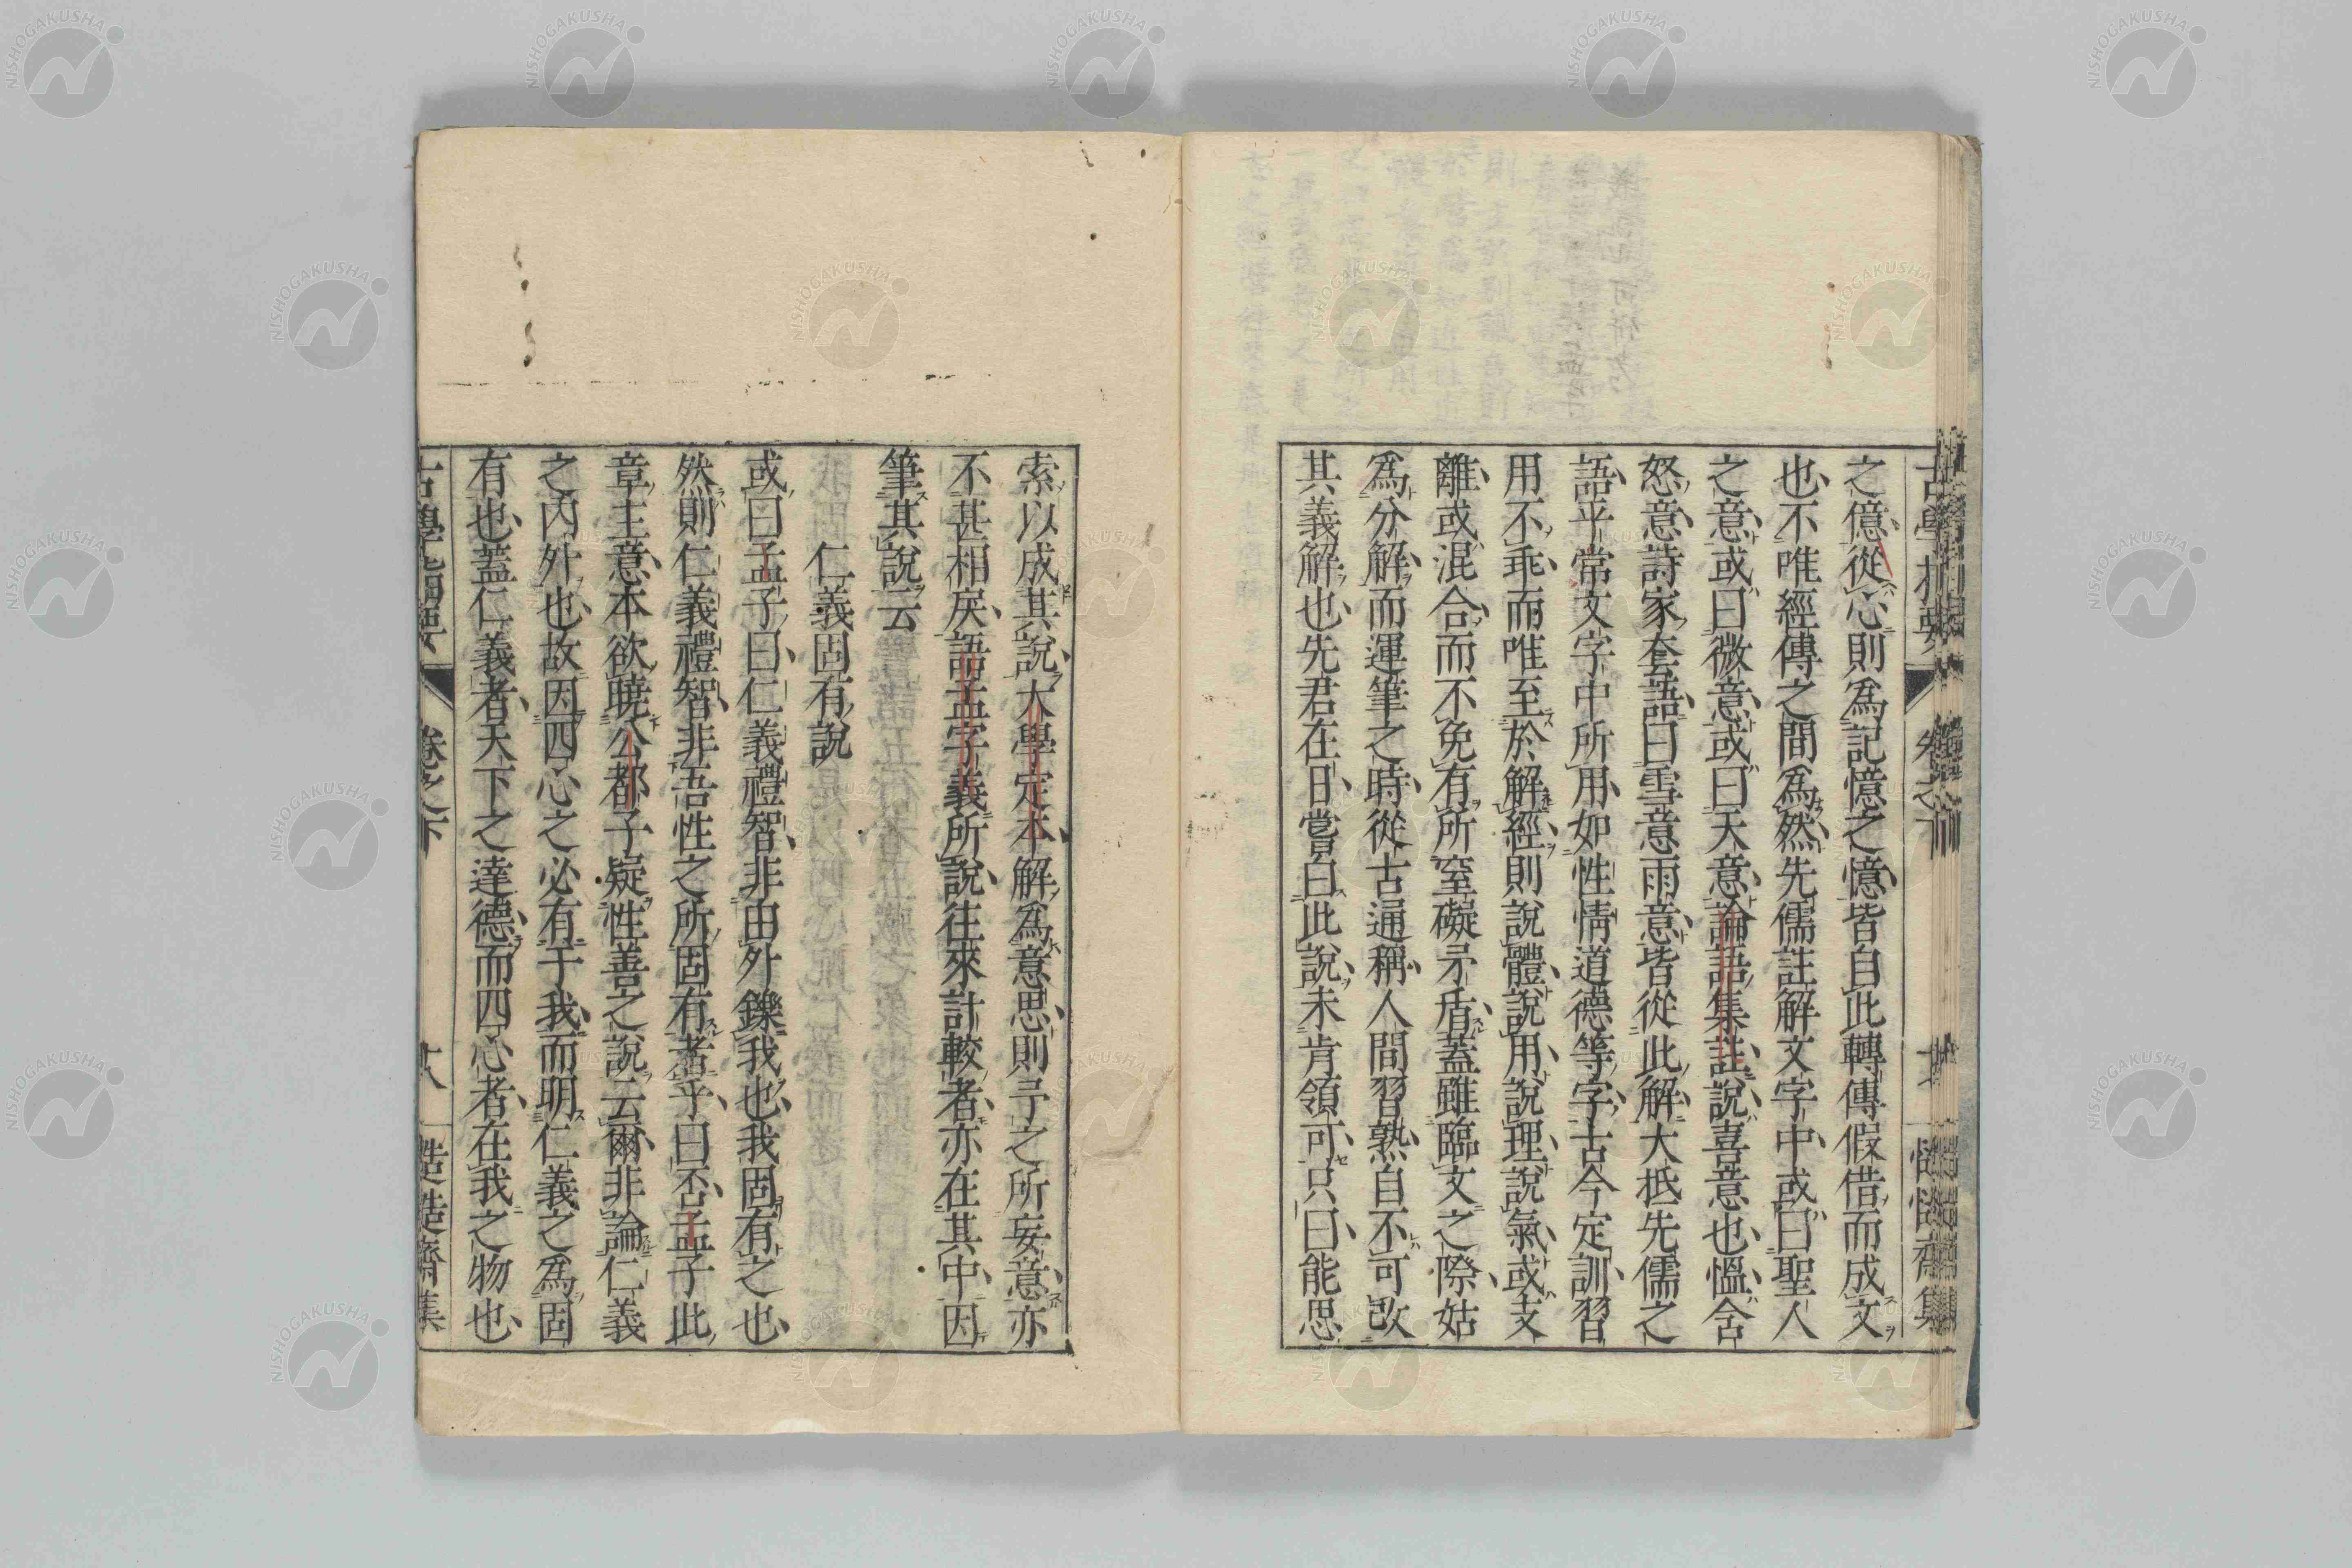 之億從心則爲記憶之憶皆自此轉傳假借而成文
也不唯經傳之間爲然先儒註解文字中或曰聖人
之意或曰微意或曰天意論語集註說喜意也慍含
怒意詩家套語曰雪意雨意皆從此解大抵先儒之
語平常文字中所用如性情道德等字古今定訓習
用不乖而唯至於解經則說體說用說理說氣或支
離或混合而不免有所窒礙矛盾蓋雖臨文之際姑
爲分解而運筆之時從古通稱人間習熟自不可改
其義解也先君在日嘗白此說未肯領可只曰能思
索以成其說大學定本解爲意思則予之所妄意亦
不甚相戾語孟字義所說往來計較者亦在其中因
筆其說云
仁義固有說
或曰孟子曰仁義禮智非由外鑠我也我固有之也
然則仁義禮智非吾性之所固有者乎曰否孟子此
章主意本欲曉公都子疑性善之說云爾非論仁義
之內外也故因四心之必有于我而明仁義之爲固
有也蓋仁義者天下之達德而四心者在我之物也
卷之下
十八
NISHOGAKUSHA